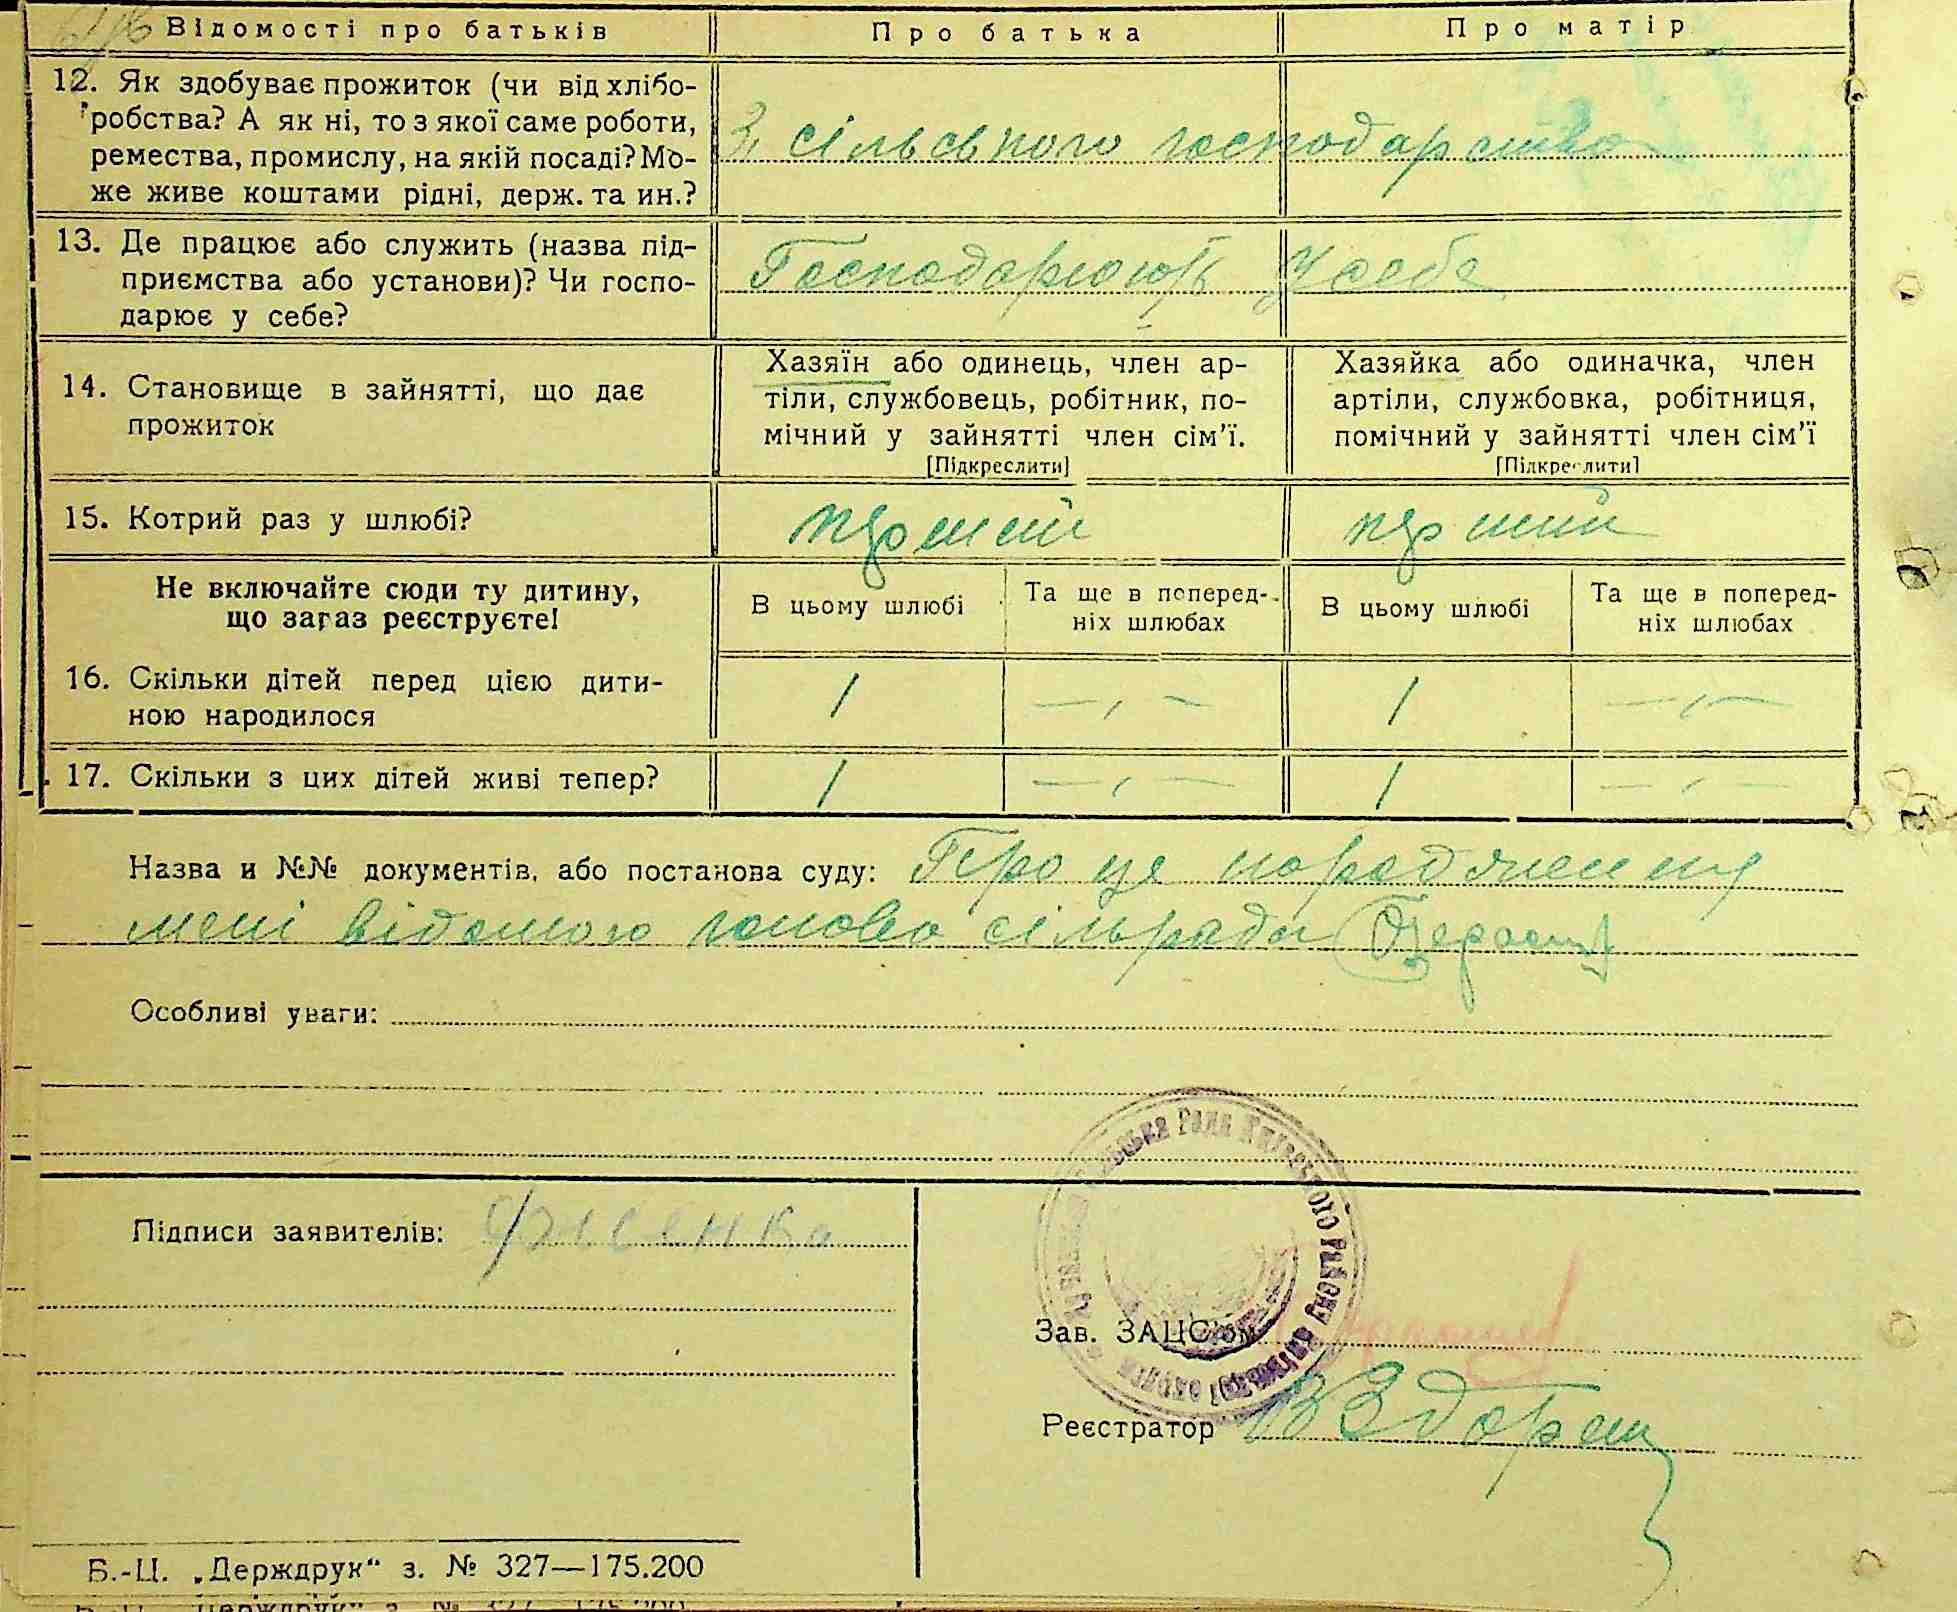 Відомості про батьків
Про батька
Про матір
12. Як здобуває прожиток (чи від хлібо-
робства? А як ні, то з якої саме роботи,
ремества, промислу, на якій посаді? Мо-
же живе коштами рідні, держ. та ин.?
З сільського господарства
13. Де працює або служить (назва під-
приємства або установи)? Чи госпо-
дарює у себе?
Господарюють у себе
14. Становище в зайнятті, що дає
прожиток
Хазяїн або одинець, член ар-
тіли, службовець, робітник, по-
мічний у зайнятті член сім'ї.
[Підкреслити]
Хазяйка або одиначка, член
артіли, службовка, робітниця,
помічний у зайнятті член сім'ї
[Підкреслити]
15. Котрий раз у шлюбі?
перший
перший
Не включайте сюди ту дитину,
що зараз реєструєте!
В цьому шлюбі
Та ще в поперед-
ніх шлюбах
В цьому шлюбі
Та ще в поперед-
ніх шлюбах
16. Скільки дітей перед цією дити-
ною народилося
1
— „ —
1
— „ —
17. Скільки з цих дітей живі тепер?
1
— „ —
1
— „ —
Назва и №№ документів, або постанова суду: Про це народження
мені відомого голова сільради
Особливі уваги:
Підписи заявителів:
Рада
Району
округи
Зав. ЗАЦС'ом
Реєстратор
Б.-Ц. „Держдрук“ з. № 327—175.200